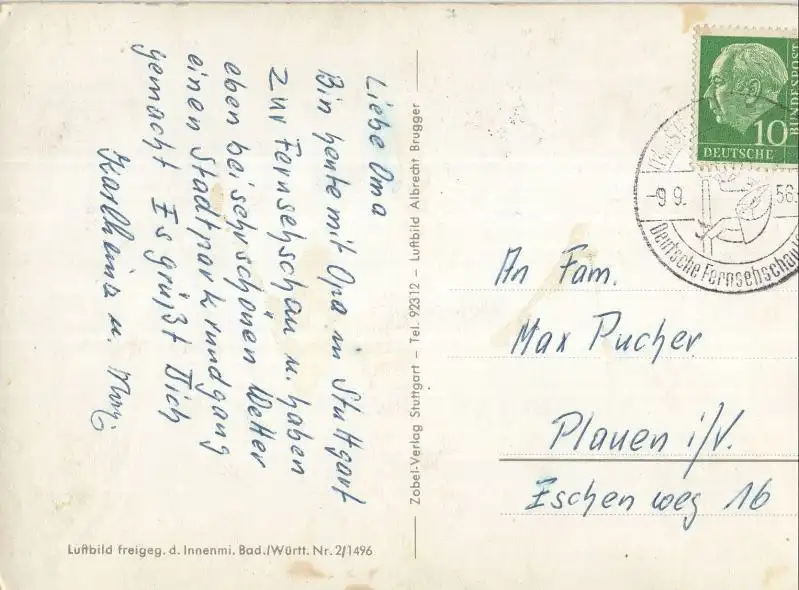 Liebe Oma
Bin heute mit Opa in Stuttgart
zur Fernsehschau u. haben
eben bei sehr schönen Wetter
einen Stadtparkrundgang
gemacht Es grüßt Dich
Karlheinz u.
Luftbild freigeg. d. Innenmi. Bad./Württ. Nr. 2/1496
Zobel-Verlag Stuttgart – Tel. 92312 – Luftbild Albrecht Brugger
10
DEUTSCHE
BUNDESPOST
-9 9.
56.
Deutsche Fernsehschau
An Fam.
Max Pucher
Plauen i/V.
Eschenweg 16